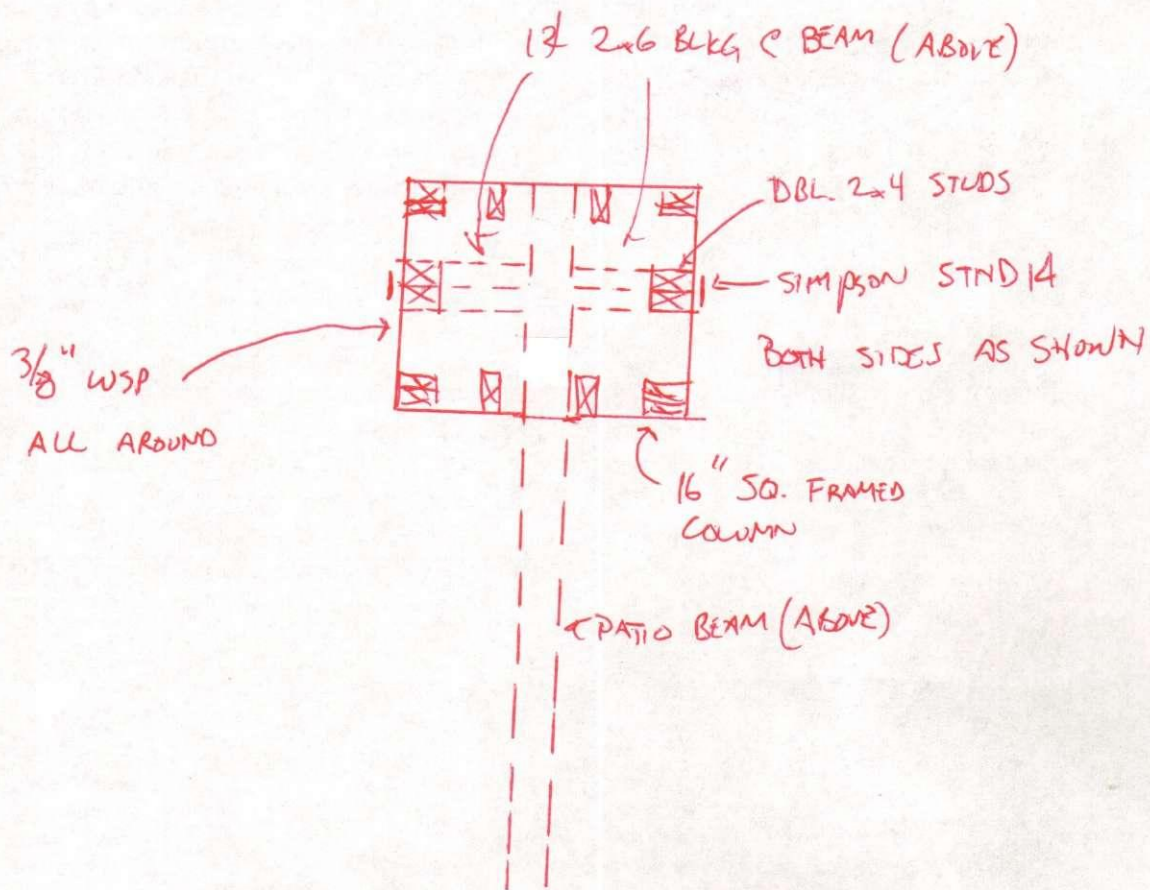 2x6 BLKG @ BEAM (ABOVE)
DBL. 2x4 STUDS
SIMPSON STHD14
BOTH SIDES AS SHOWN
3/8" WSP
ALL AROUND
16" SQ. FRAMED
COLUMN
PATIO BEAM (ABOVE)